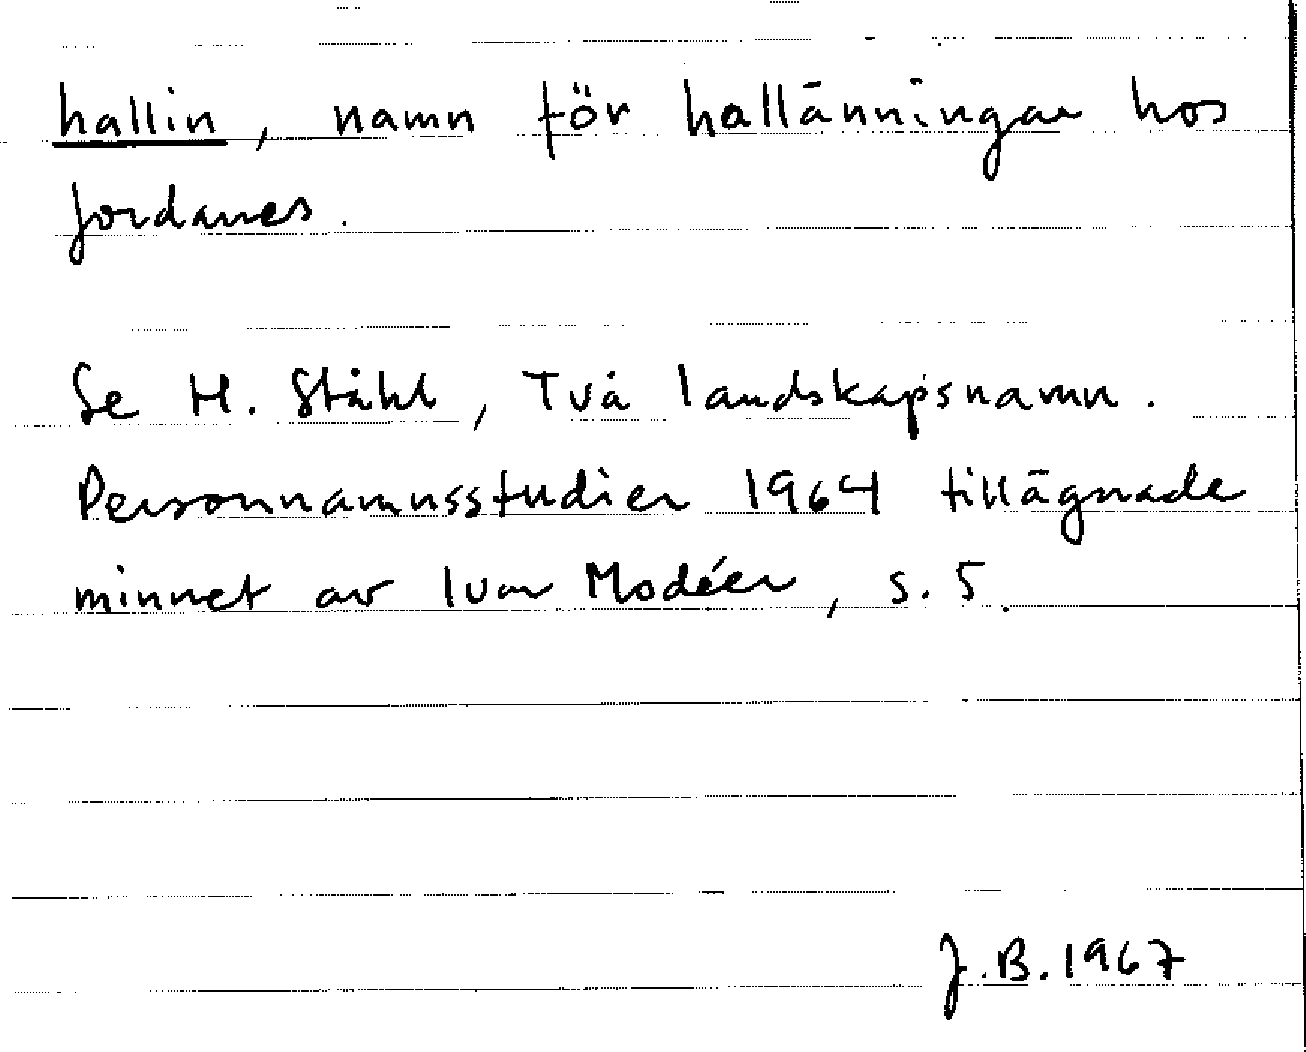 hallin, namn för hallänningar hos
Jordanes.
Se H. Ståhl, Två landskapsnamn.
Personnamnsstudier 1964 tillägnade
minnet av Ivar Modéer, s. 5.
J.B. 1967